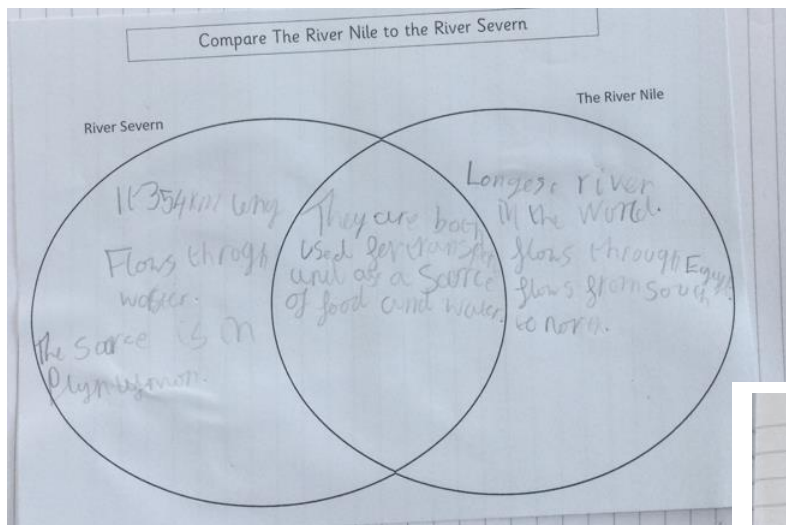 Compare The River Nile to the River Severn
River Severn
The River Nile
354km long
Flows throgh
water.
The source is in
They are both
used for transport
and as a Source
of food and water.
Longest river
in the world.
flows through Egypt.
flows from South
to north.